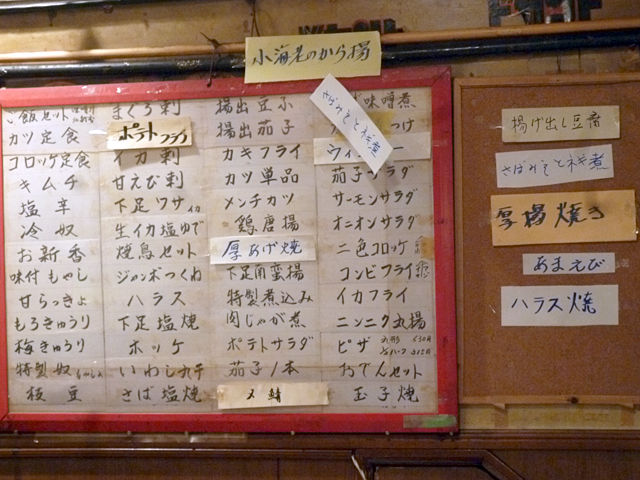 小海老のから揚
ご飯セット
カツ定食
コロッケ定食
キムチ
塩辛
冷奴
お新香
味付もやし
甘らっきょ
もろきゅうり
梅きゅうり
特製奴
枝豆
まぐろ刺
ポテトフライ
イカ刺
甘えび刺
下足ワサ
生イカ塩ゆで
焼鳥セット
ジャンボつくね
ハラス
下足塩焼
ホッケ
いわし丸干
さば塩焼
揚出豆ふ
揚出茄子
カキフライ
カツ単品
メンチカツ
鶏唐揚
厚あげ焼
下足南蛮揚
特製煮込み
肉じゃが煮
ポテトサラダ
茄子1本
〆鯖
味噌煮
さばみそと煮
茄子サラダ
サーモンサラダ
オニオンサラダ
二色コロッケ
コンビフライ
イカフライ
ニンニク丸揚
ピザ
おでんセット
玉子焼
揚げ出し豆腐
さばみそと煮
厚揚焼き
あまえび
ハラス焼